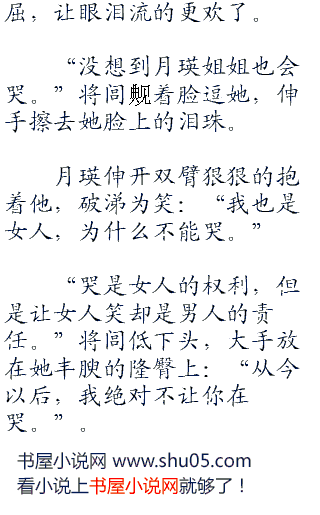 屈，让眼泪流的更欢了。
“没想到月瑛姐姐也会
哭。”将闾觍着脸逗她，伸
手擦去她脸上的泪珠。
月瑛伸开双臂狠狠的抱
着他，破涕为笑：“我也是
女人，为什么不能哭。”
“哭是女人的权利，但
是让女人笑却是男人的责
任。”将闾低下头，大手放
在她丰腴的隆臀上：“从今
以后，我绝对不让你在
哭。”。
书屋小说网 www.shu05.com
看小说上书屋小说网就够了！